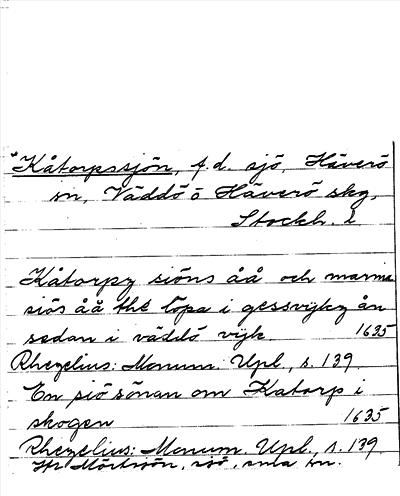 *Kåtorpssjön, f.d. sjö, Häverö
sn, Väddö ö Häverö skg,
Stockh. l
Kåtorpz siöns åå och marma
siös åå the löpa i gessvijkz ån
sedan i väddö vijk. 1635
Rhezelius: Monum. Upl., s. 139.
En siö sönan om Katorp i
skogen 1635
Rhezelius: Monum. Upl., s. 139.
sjö, sma sn.